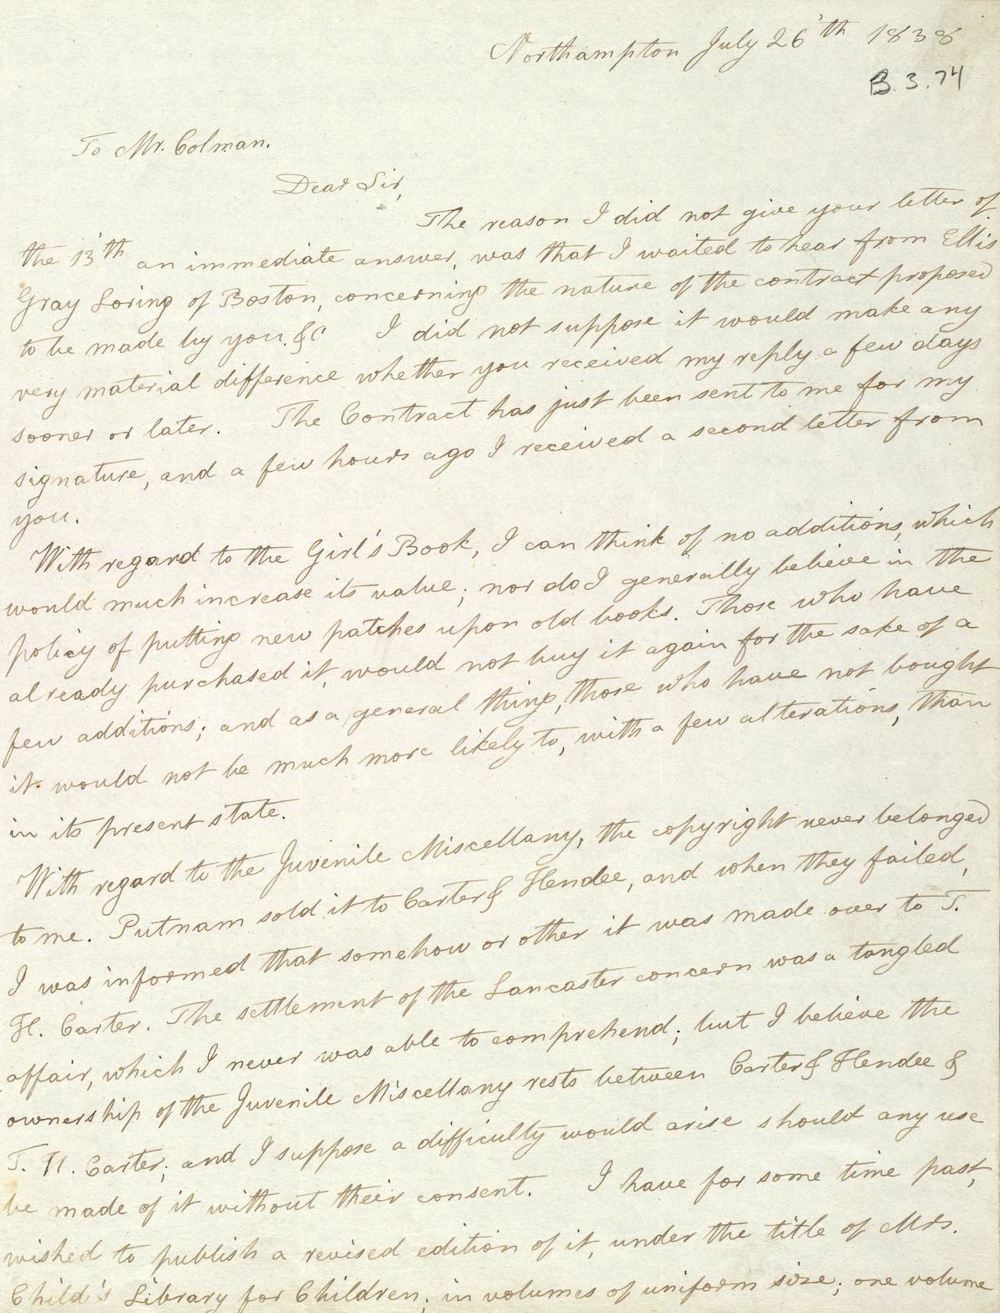 Northampton July 26'th 1838
B.3.74
To Mr. Colman.
Dear Sir,
The reason I did not give your letter of
the 13'th an immediate answer, was that I waited to hear from Ellis
Gray Loring of Boston, concerning the nature of the contract proposed
to be made by you, &c I did not suppose it would make any
very material difference whether you received my reply a few days
sooner or later. The Contract has just been sent to me for my
signature, and a few hours ago I received a second letter from
you.
With regard to the Girl's Book, I can think of no additions, which
would much increase its value; nor do I generally believe in the
policy of putting new patches upon old books. Those who have
already purchased it, would not buy it again for the sake of a
few additions; and as a general thing, those who have not bought
it would not be much more likely to, with a few alterations, than
in its present state.
With regard to the Juvenile Miscellany, the copyright never belonged
to me. Putnam sold it to Carter & Hendee, and when they failed,
I was informed that somehow or other it was made over to T.
H. Carter. The settlement of the Lancaster concern was a tangled
affair, which I never was able to comprehend; but I believe the
ownership of the Juvenile Miscellany rests between Carter & Hendee &
T. H. Carter; and I suppose a difficulty would arise should any use
be made of it without their consent. I have for some time past,
wished to publish a revised edition of it, under the title of Mrs.
Child's Library for Children; in volumes of uniform size; one volume